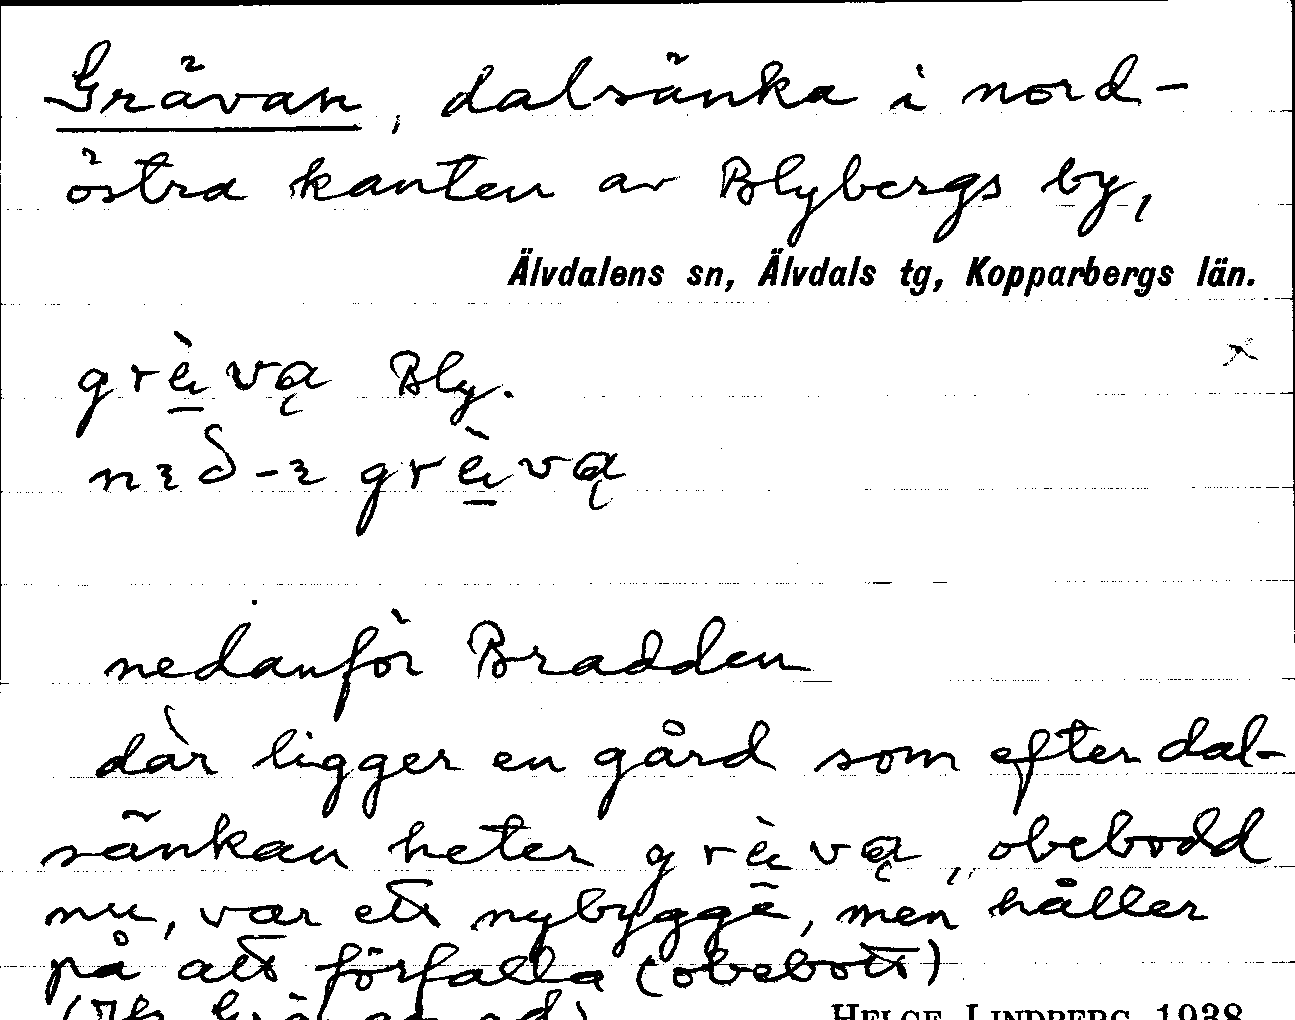 Grävan, dalsänka i nord-
östra kanten av Blybergs by,
Älvdalens sn, Älvdals tg, Kopparbergs län.
grὲvą Bly.
nıδ-ı grὲvą
nedanför Bradden
där ligger en gård som efter dal-
sänkan heter grὲvą, obebodd
nu, var ett nybygge, men håller
på att förfalla (obebott)
HELGE LINDBERG 1938